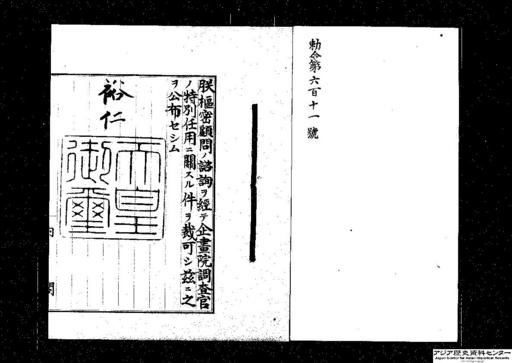 勅令第六百十一號
朕樞密顧問ノ諮詢ヲ經テ企畫院調査官
ノ特別任用ニ關スル件ヲ裁可シ茲ニ之
ヲ公布セシム
裕仁
天皇御璽
内
閣
アジア歴史資料センター
Japan Center for Asian Historical Records